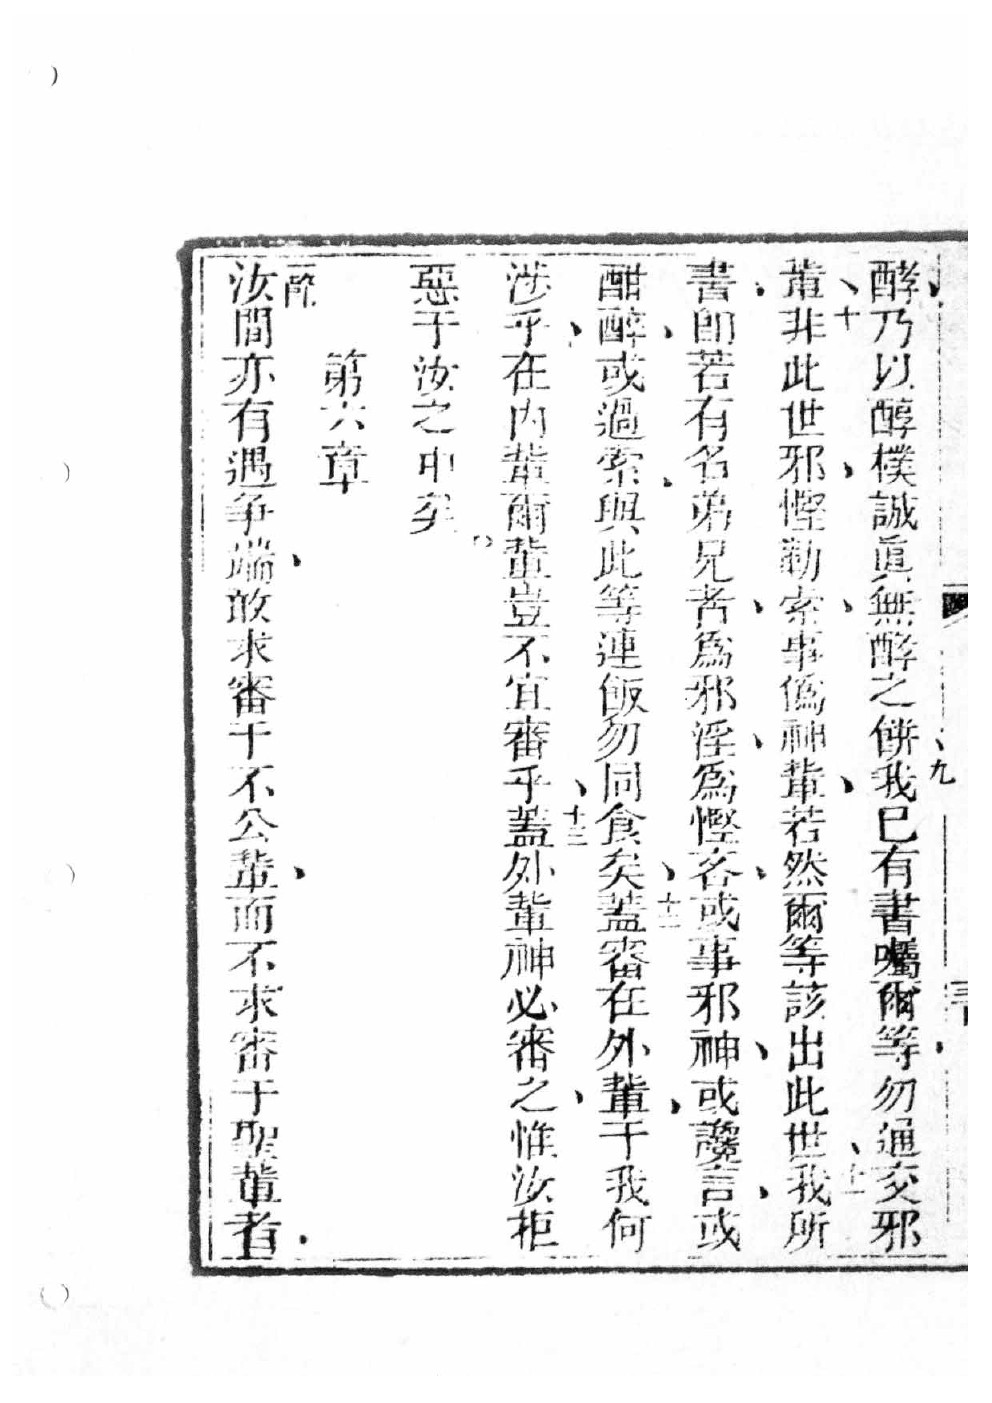 酵乃以醇樸誠眞無酵之餅九我已有書囑爾等勿通交邪
輩十非此世邪慳勦索事僞神輩若然爾等該出此世十一我所
書卽若有名弟兄者爲邪淫爲慳吝或事邪神或讒言或
酣醉或過索與此等連飯勿同食矣十二蓋審在外輩干我何
涉乎在內輩爾輩豈不宜審乎十三蓋外輩神必審之惟汝拒
惡于汝之中矣
第六章
一
汝間亦有遇爭端敢求審于不公輩而不求審于聖輩者